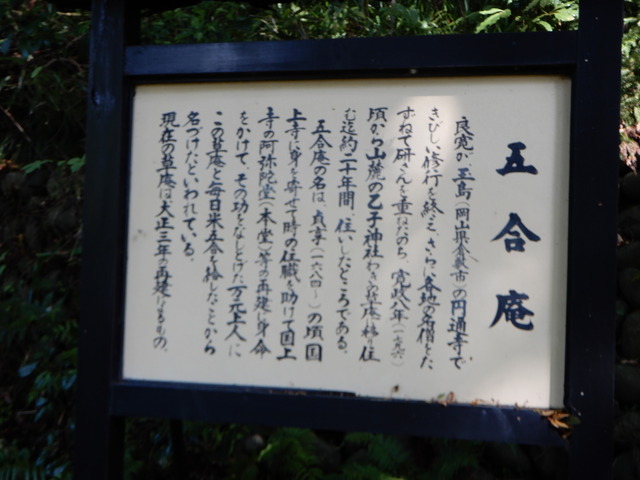 五合庵
良寛が、玉島（岡山県倉敷市）の円通寺で
きびしい修行を終え、さらに各地の高僧をた
ずねて研さんを重ねたのち、寛政八年（一七九六）
頃から山麓の乙子神社わきの草庵に移り住
む迄約二十年間、住いしたところである。
五合庵の名は、貞享（一六八四〜）の頃国
上寺に身を寄せて時の住職を助けて国上
寺の阿弥陀堂（本堂）等の再建に身命
をかけて、その功をなしとげた万元上人に
この草庵と毎日米五合を給したことから
名づけたといわれている。
現在の草庵は大正三年の再建によるもの。